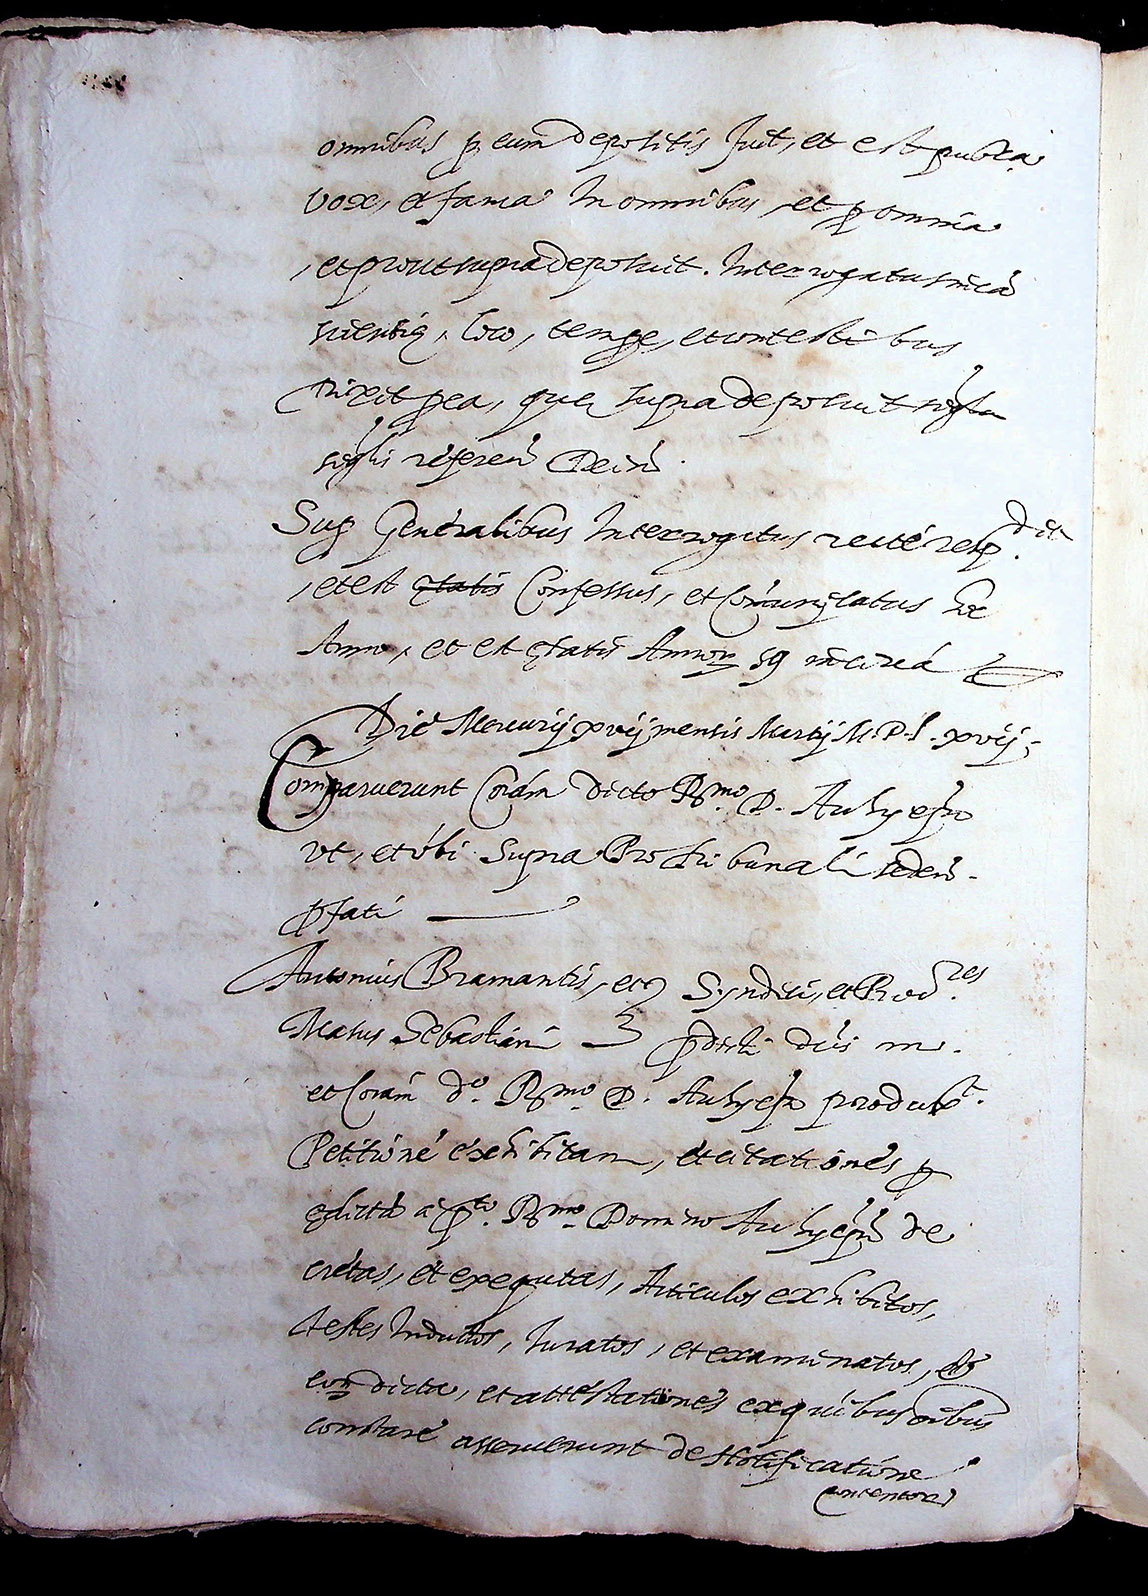 omnibus p eum depositis fuit, et est publica
vox, et fama In omnibus, et p omnia
, et prout supra deposuit. Interrogatus in cã
scientię, loco, tempe, et contestibus
Dixit p ea, quę supra deposuit
singlis referen Dein
Sup Generalibus Interrogatus recté resp. dit
, et est ętatis Confessus, et Comunicatus hoc
Anno, et est ętatis Annor 59 in circà
Die Mercurij xvij mensis Martij M.D.L. xvij.
Comparuerunt Corám dicto Rmo D. Archyepo
vt, et vbi Supra Pro tribunali seden.
pfati
Antonius Bramantis, et Syndici, et Procres
Marius Sebastiani pdicti dnis
et Corám do. Rmo. D. Archyepo produxt.
Petitioné exhibitam, et citationes p
ędicta a pto. Rmo. Domino Archyepo de
cretas, et exequutas, Articulos exhibitos,
testes Inductos, Iuratos, et examinatos,
eorum dicta, et attestationes ex quibus oibus
constare asseruerunt de Notificatione
contentor